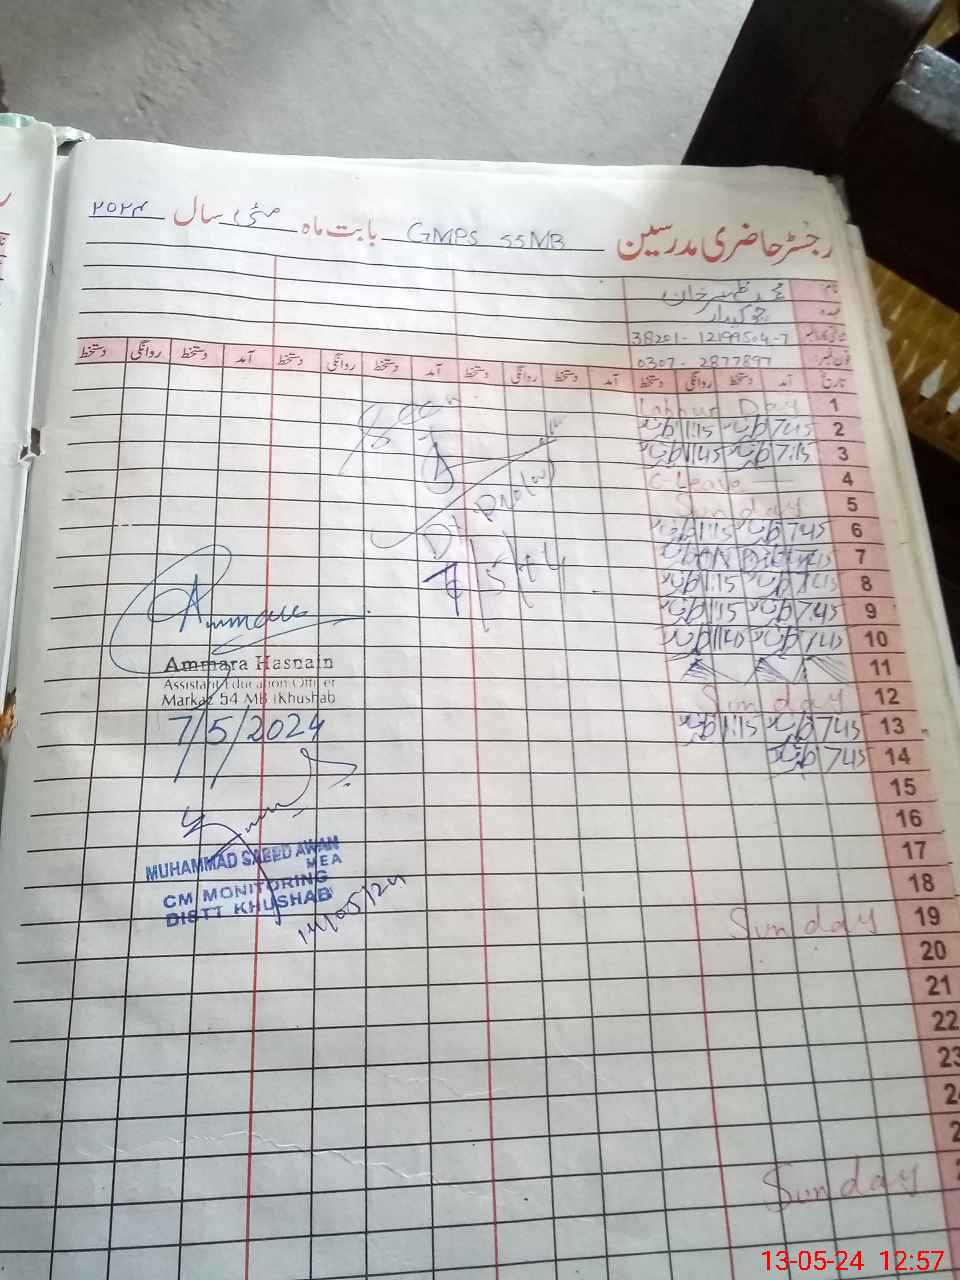 رجسٹر حاضری مدرسین GMPS 55MB بابت ماہ مئی سال ۲۰۲۴
نام محمد ظہیر خان
عہدہ چوکیدار
38201-12199504-7
فون نمبر 0307-2877897
تاریخ آمد دستخط روانگی دستخط آمد دستخط روانگی دستخط آمد دستخط روانگی دستخط آمد دستخط روانگی دستخط
1 Labour Day
2 745 1:15
3 7:15 1145
4 C-Leave
5 Sunday
6 745 1:15
7
8 1:15
9 7:45 1:15
10
11
12 Sunday
13 745 1:15
14 745
15
16
17
18
19 Sunday
20
21
22
23
Sunday
Seen
Ammara
Ammara Hasnain
Assistant Education Officer
Markaz 54 MB (Khushab
7/5/2024
MUHAMMAD SAEED AWAN
MEA
CM MONITORING
DISTT KHUSHAB
14/05/24
13-05-24 12:57